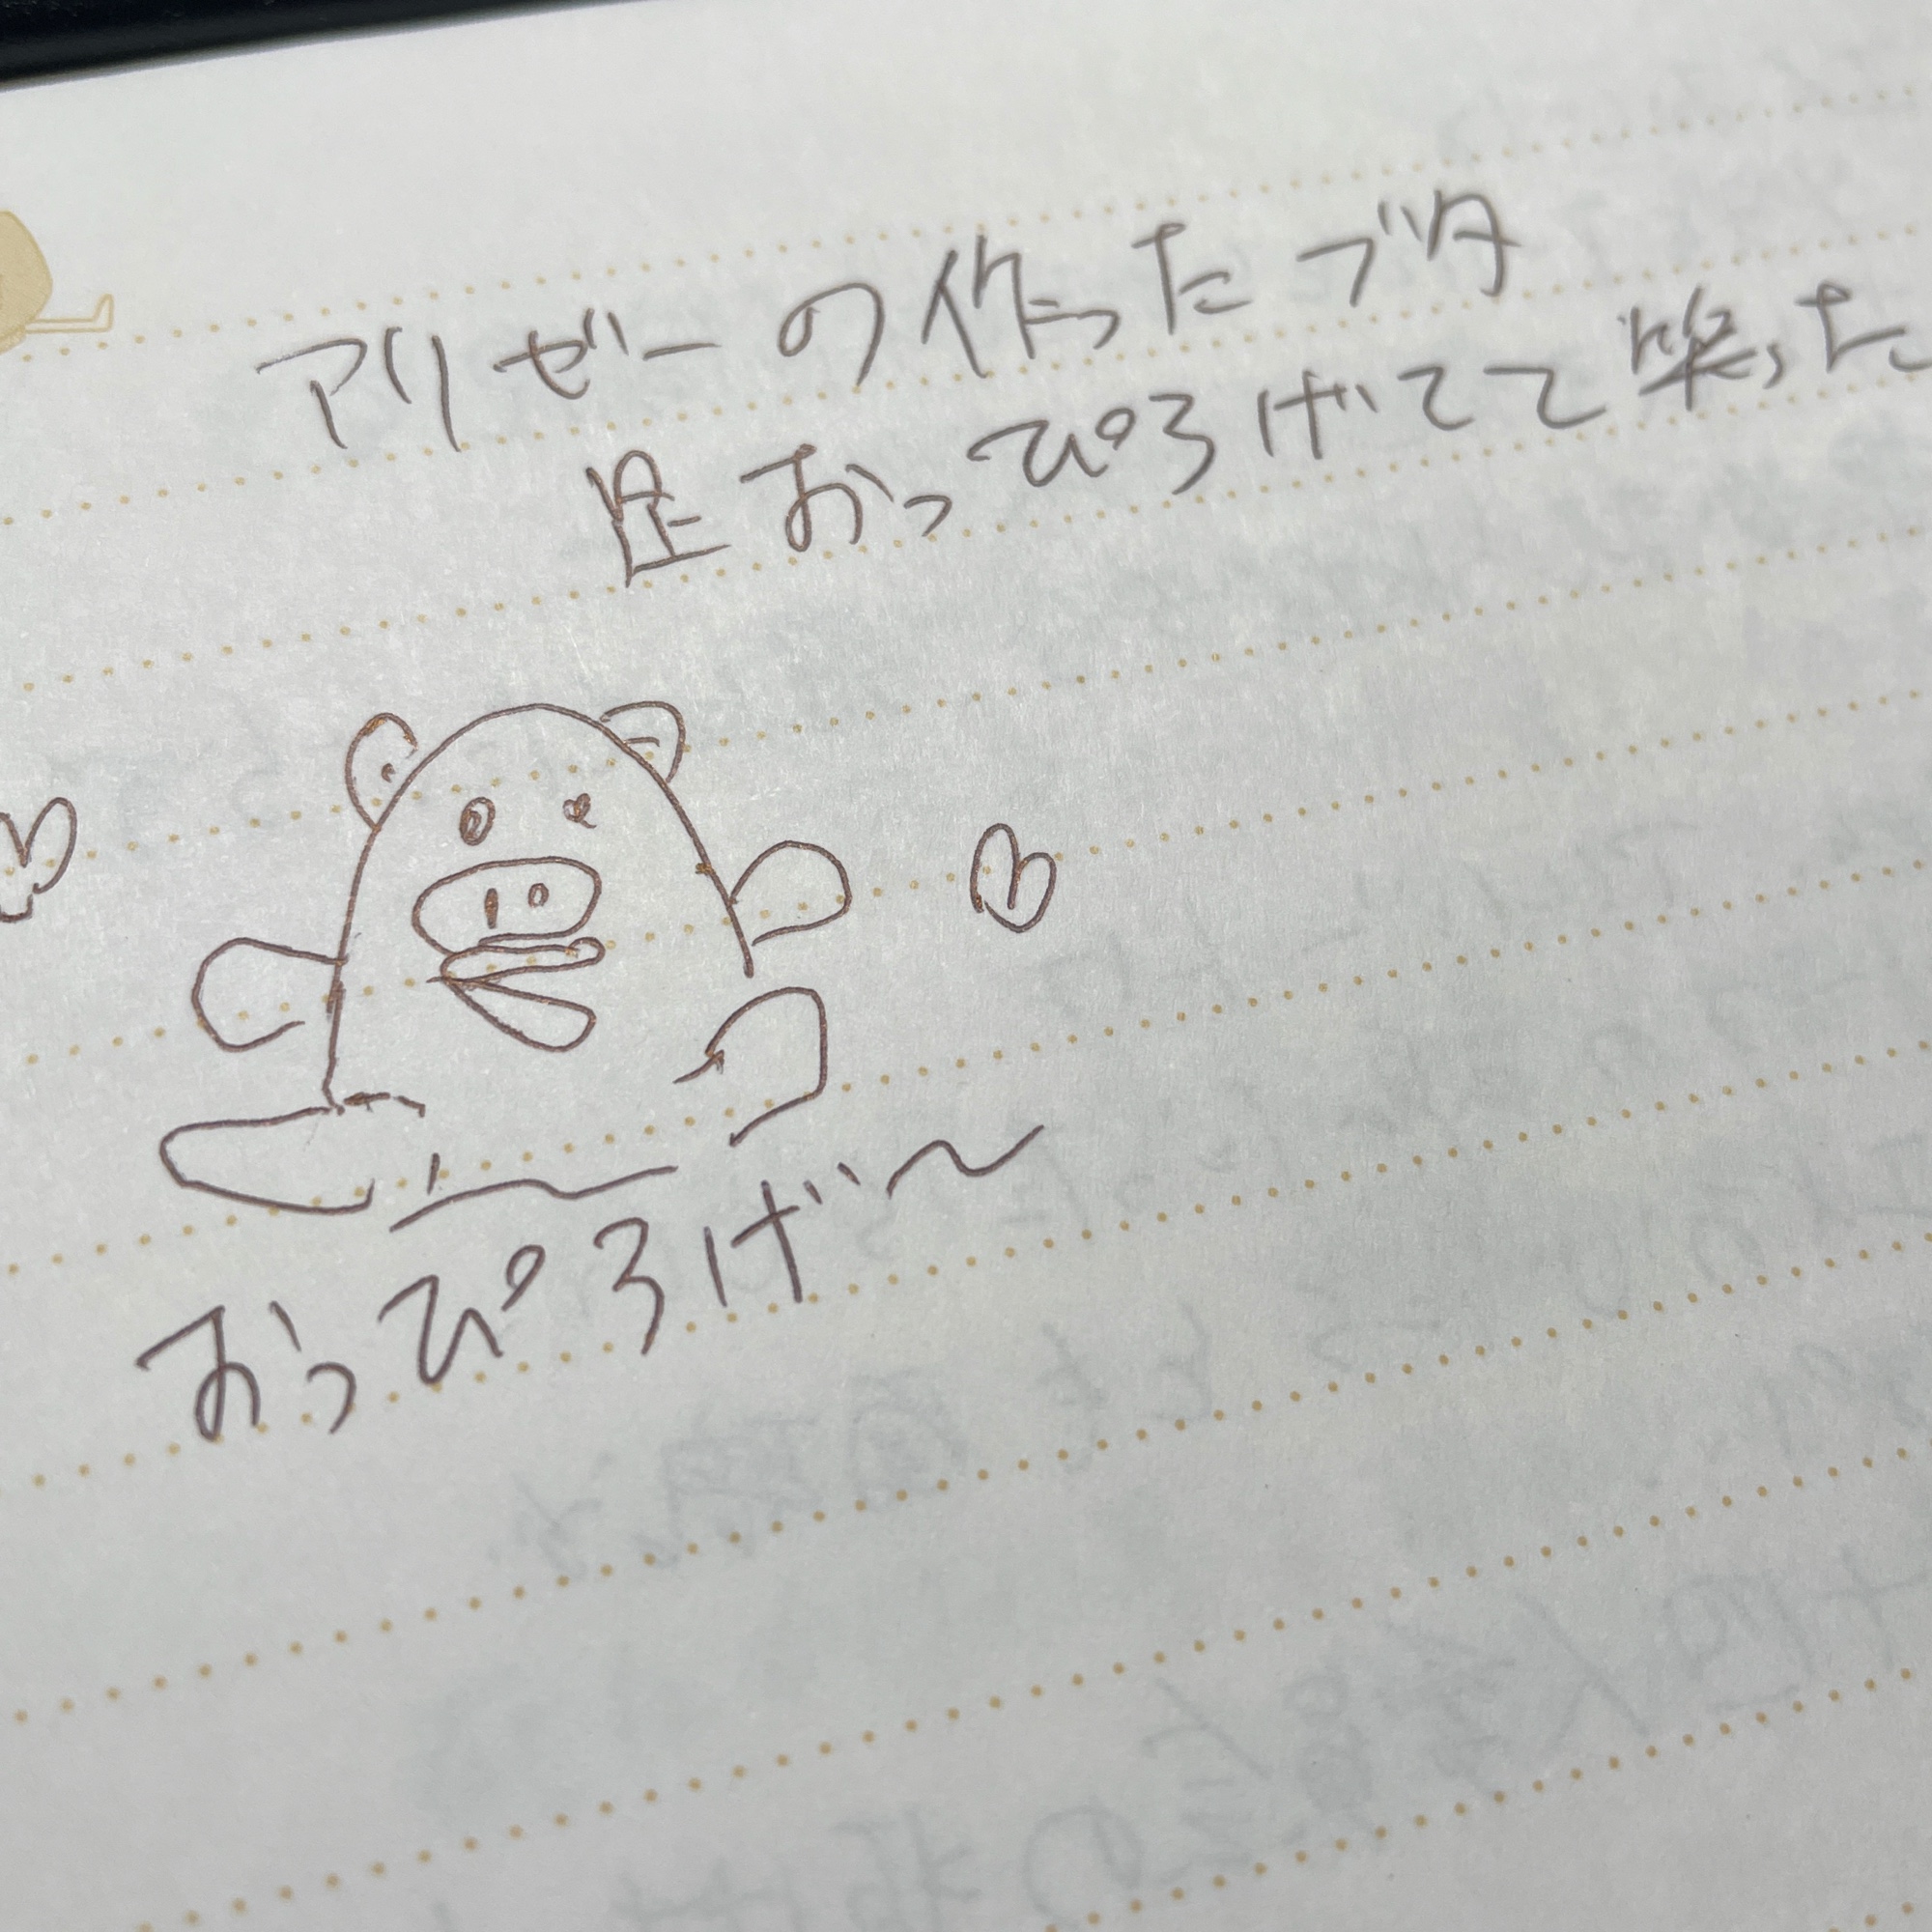 アリゼーの作ったブタ
足おっぴろげてて笑った
おっぴろげ〜